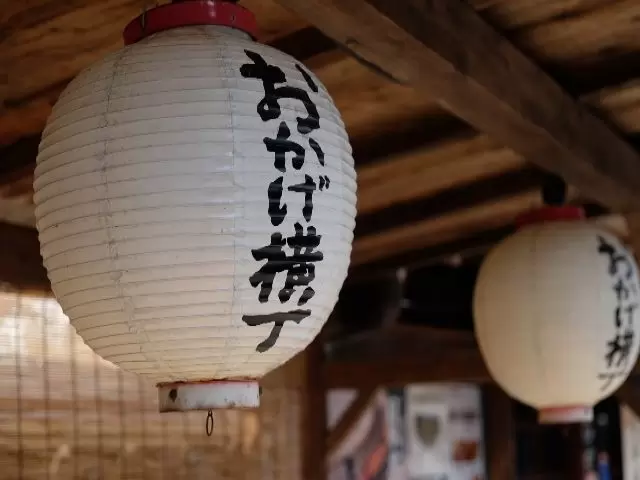 おかげ横丁
おかげ横丁